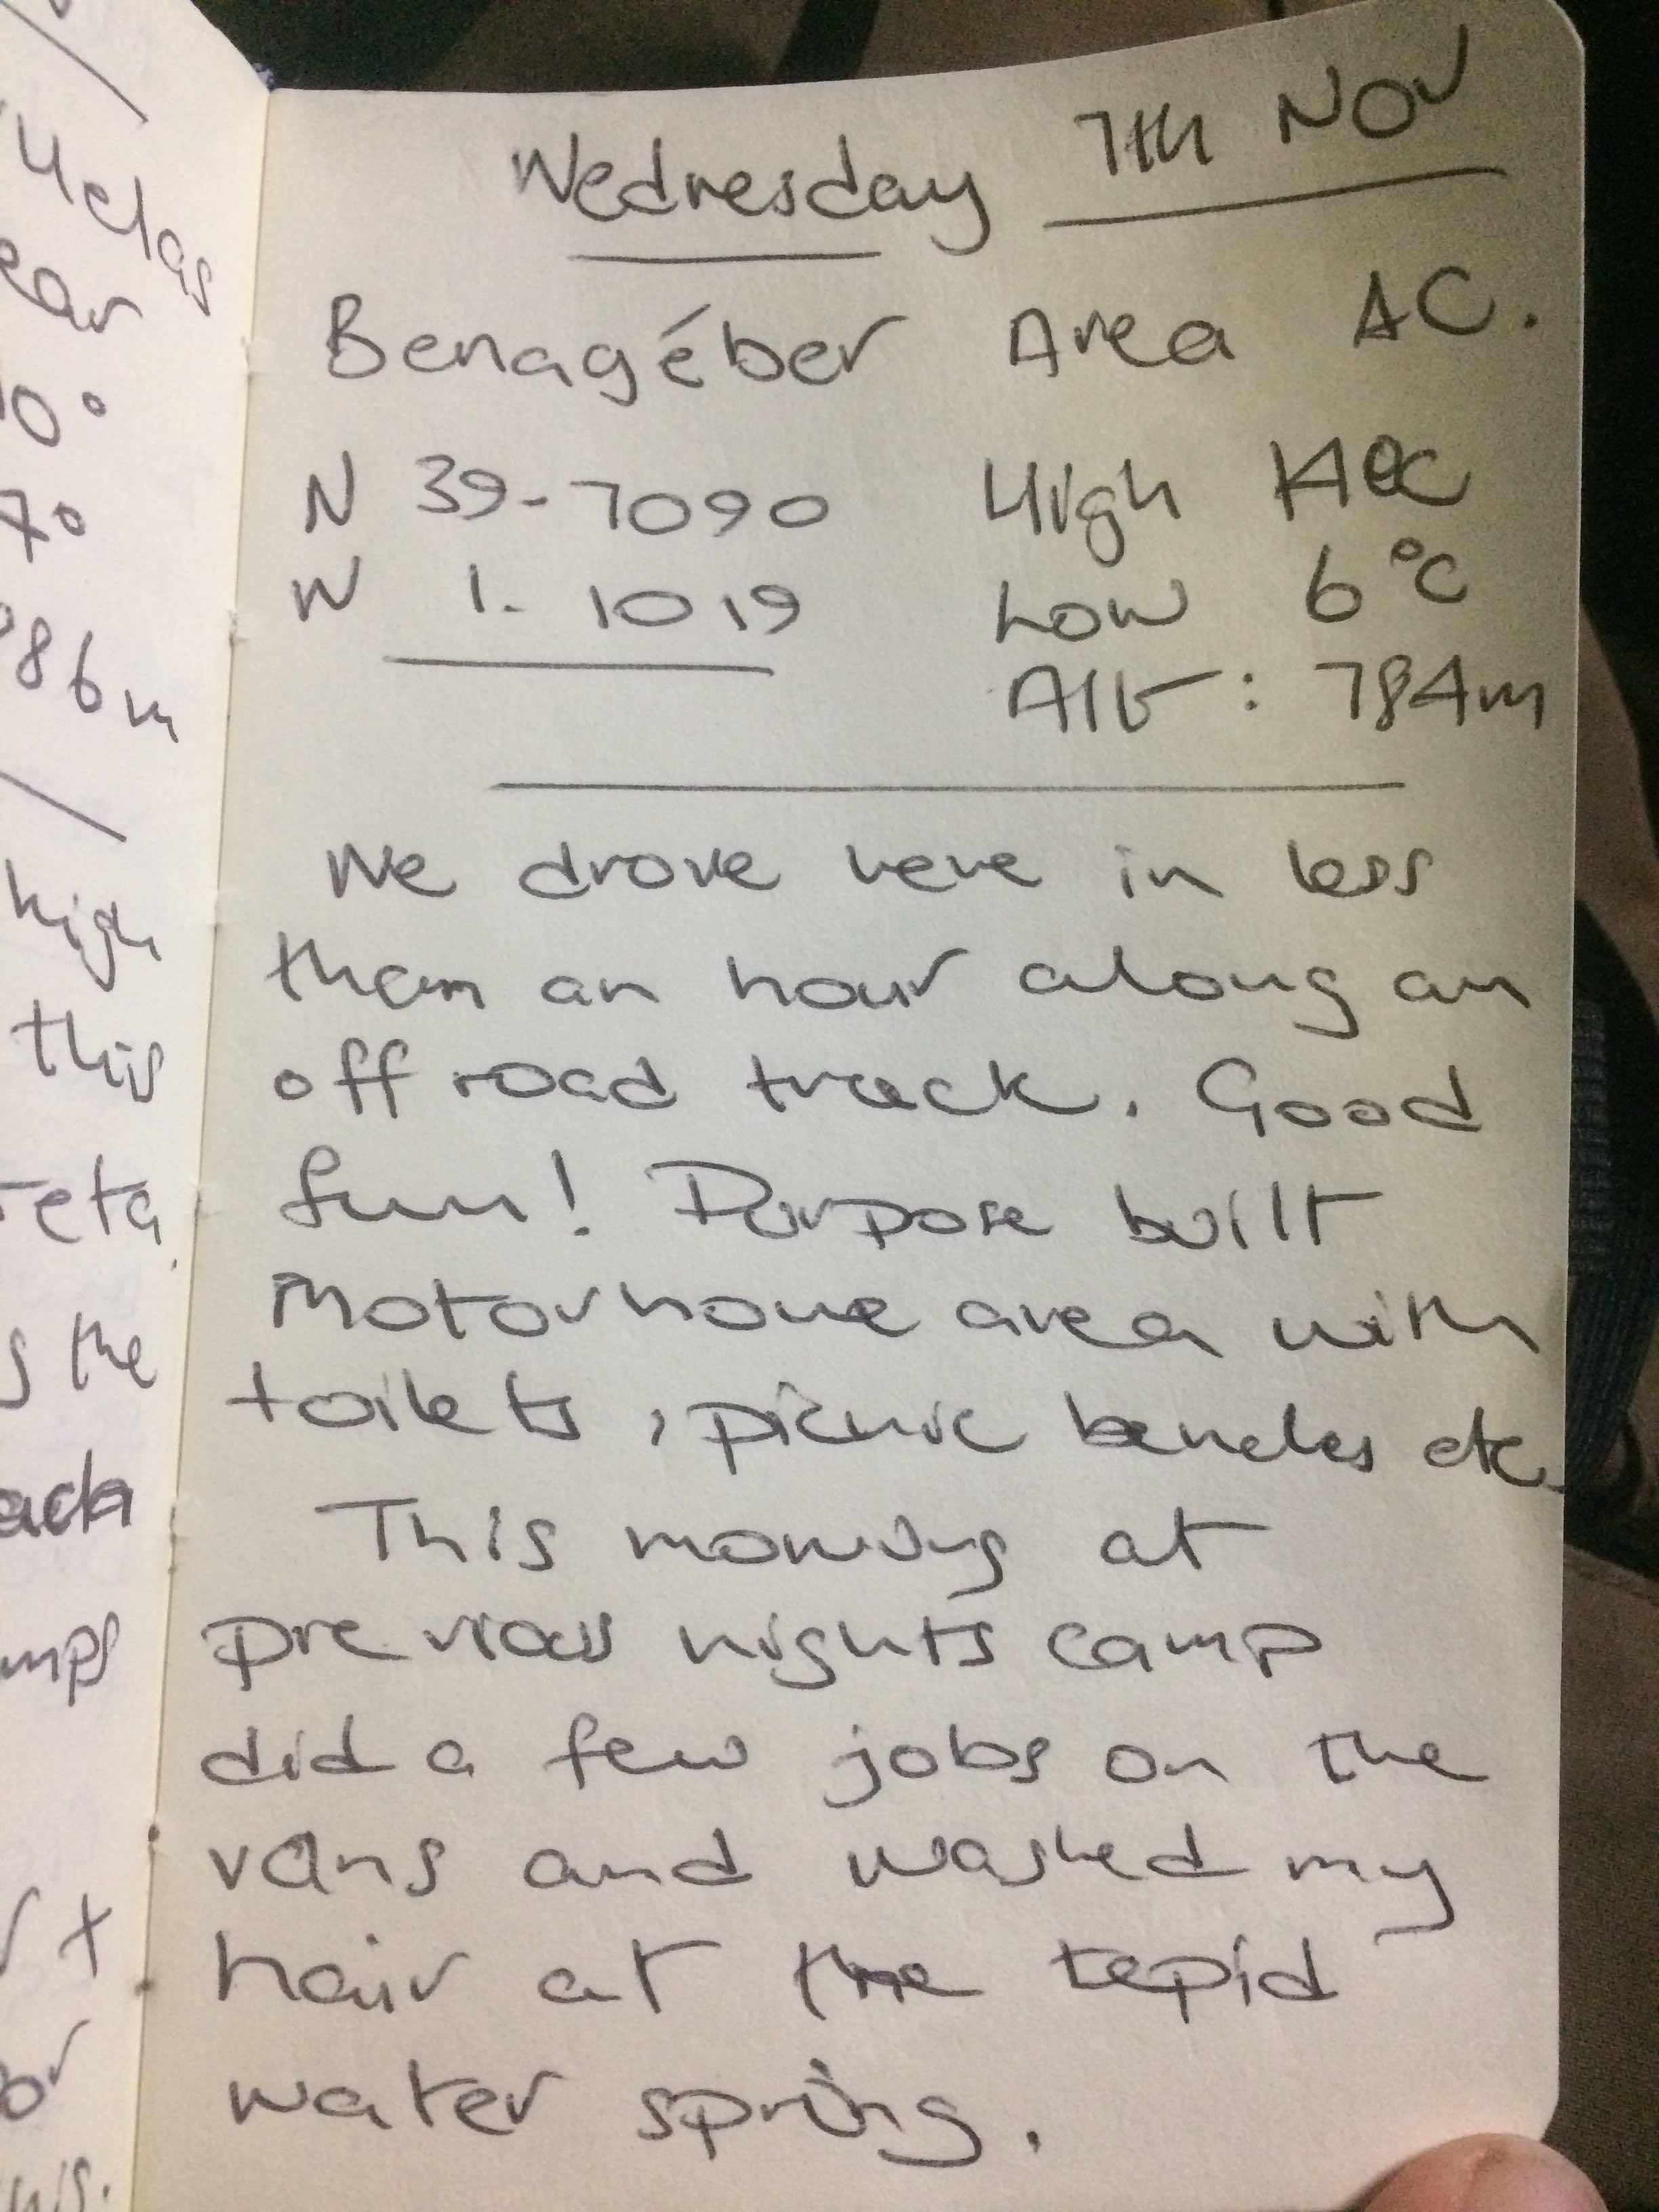 Wednesday 7th NOV
Benagéber Area AC.
N 39-7090 High 14°C
W 1.1019 Low 6°C
Alt: 784m
We drove here in less
than an hour along an
off road track. Good
fun! Purpose built
Motorhome area with
toilets, picnic benches etc
This morning at
previous nights camp
did a few jobs on the
vans and washed my
hair at the tepid
water spring.
ear
0°
7°
86m
high
this
reta.
s the
ack
mps